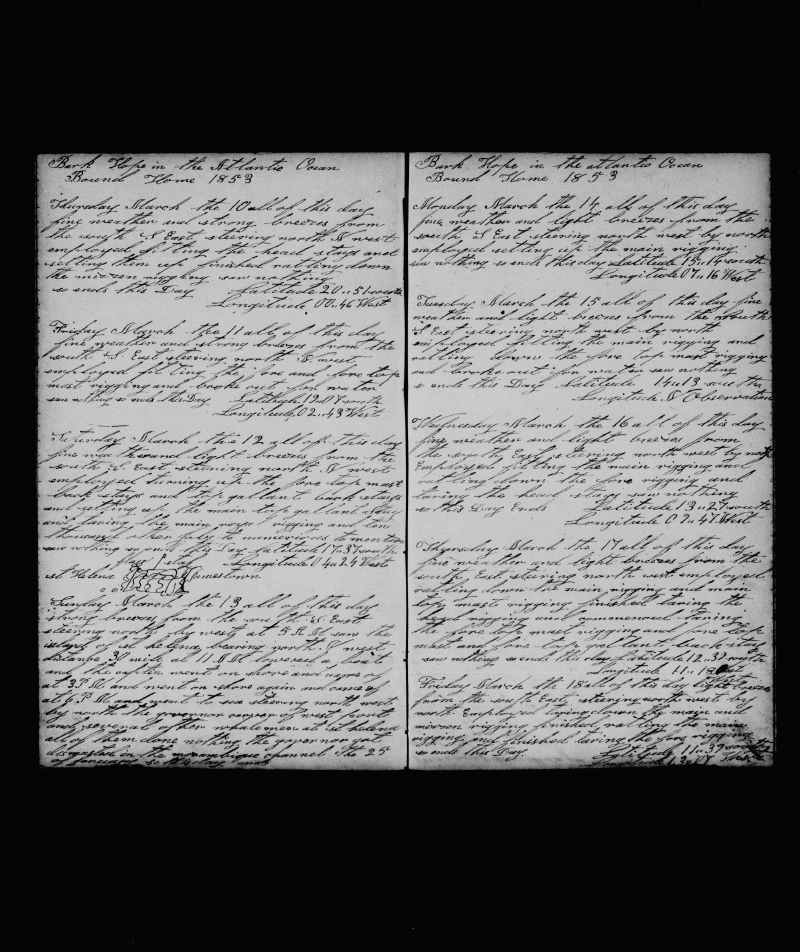 Bark Hope in the Atlantic Ocean
Bound Home 1853
Thursday March the 10 all of this day
fine weather and strong breezes from
the south S East steering north N west
employed fitting the head stays and
setting them up finished ratling down
the mizzen rigging saw nothing
so ends this Day Latitude 20..51 south
Longitude 00..46 West
Friday March the 11 all of this day
fine weather and strong breezes from the
south S East steering north N west
employed fitting the fore and fore top
mast rigging and broke out for water
saw nothing so ends this Day Latitude 19..07 south
Longitude 02..43 West
Saturday March the 12 all of this day
fine weather and light breezes from the
south S. East steering north N west
employed turning up the fore top mast
back stays and top gallant back stays
and setting up the main top gallant stay
and taring the main royal rigging and ten
thousand other jobs to numerious to mention
saw nothing so ends this Day Latitude 17..37 south
Longitude 04..24 West
st Helena Jamestown
Sunday March the 13 all of this day
strong breezes from the south S East
steering north by west at 5 A M saw the
island of st helena bearing north N west
distance 30 mile at 11 A M lowered a boat
and the captin went on shore and came of
at 3 P M and went on shore again and came of
at 6 P M and went to sea steering north west
by north the governor carver of west port
and several other whalemen at st helena
all of them done nothing the governor got
dismasted in the mozambique channel the 25
of
Bark Hope in the atlantic Ocean
Bound Home 1853
Monday March the 14 all of this day
fine weather and light breezes from the
south S East steering north west by north
employed setting up the main rigging
saw nothing so ends this day Latitude 15..14 south
Longitude 07..16 West
Tuesday March the 15 all of this day fine
weather and light breezes from the South
S East steering north west by north
employed fitting the main rigging and
ratling down the fore top mast rigging
and broke out for water saw nothing
so ends this Day Latitude 14..13 south
Longitude N Observation
Wednesday March the 16 all of this day
fine weather and light breezes from
the south East steering north west by north
Employed fitting the main rigging and
ratling down the fore rigging and
taring the head stays saw nothing
so this Day Ends Latitude 13..27 south
Longitude 09..47 West
Thursday March the 17 all of this day
fine weather and light breezes from the
south East steering north west employed
ratling down the main rigging and main
top mast rigging finished taring the
head rigging and commenced taring
the fore top mast rigging and fore top
mast and fore top gallant back stay
saw nothing so ends this day Latitude 12..39 south
Longitude 11..18 West
Friday March the 18 all of this day light breezes
from the south East steering north west by
north Employed taring down the main and
mizzen rigging finished ratling the main
rigging and finished taring the fore rigging
so ends this Day Latitude 11..39 south
Longitude 13..07 West